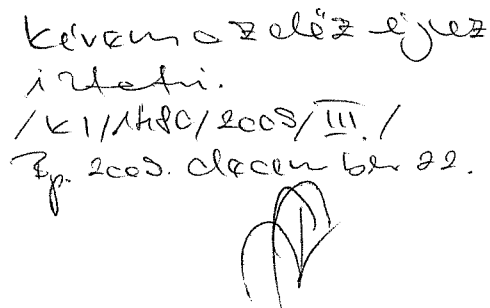 Kérem az előzményhez
iktatni.
/KI/1480/2009/III./
Bp. 2009. december 22.